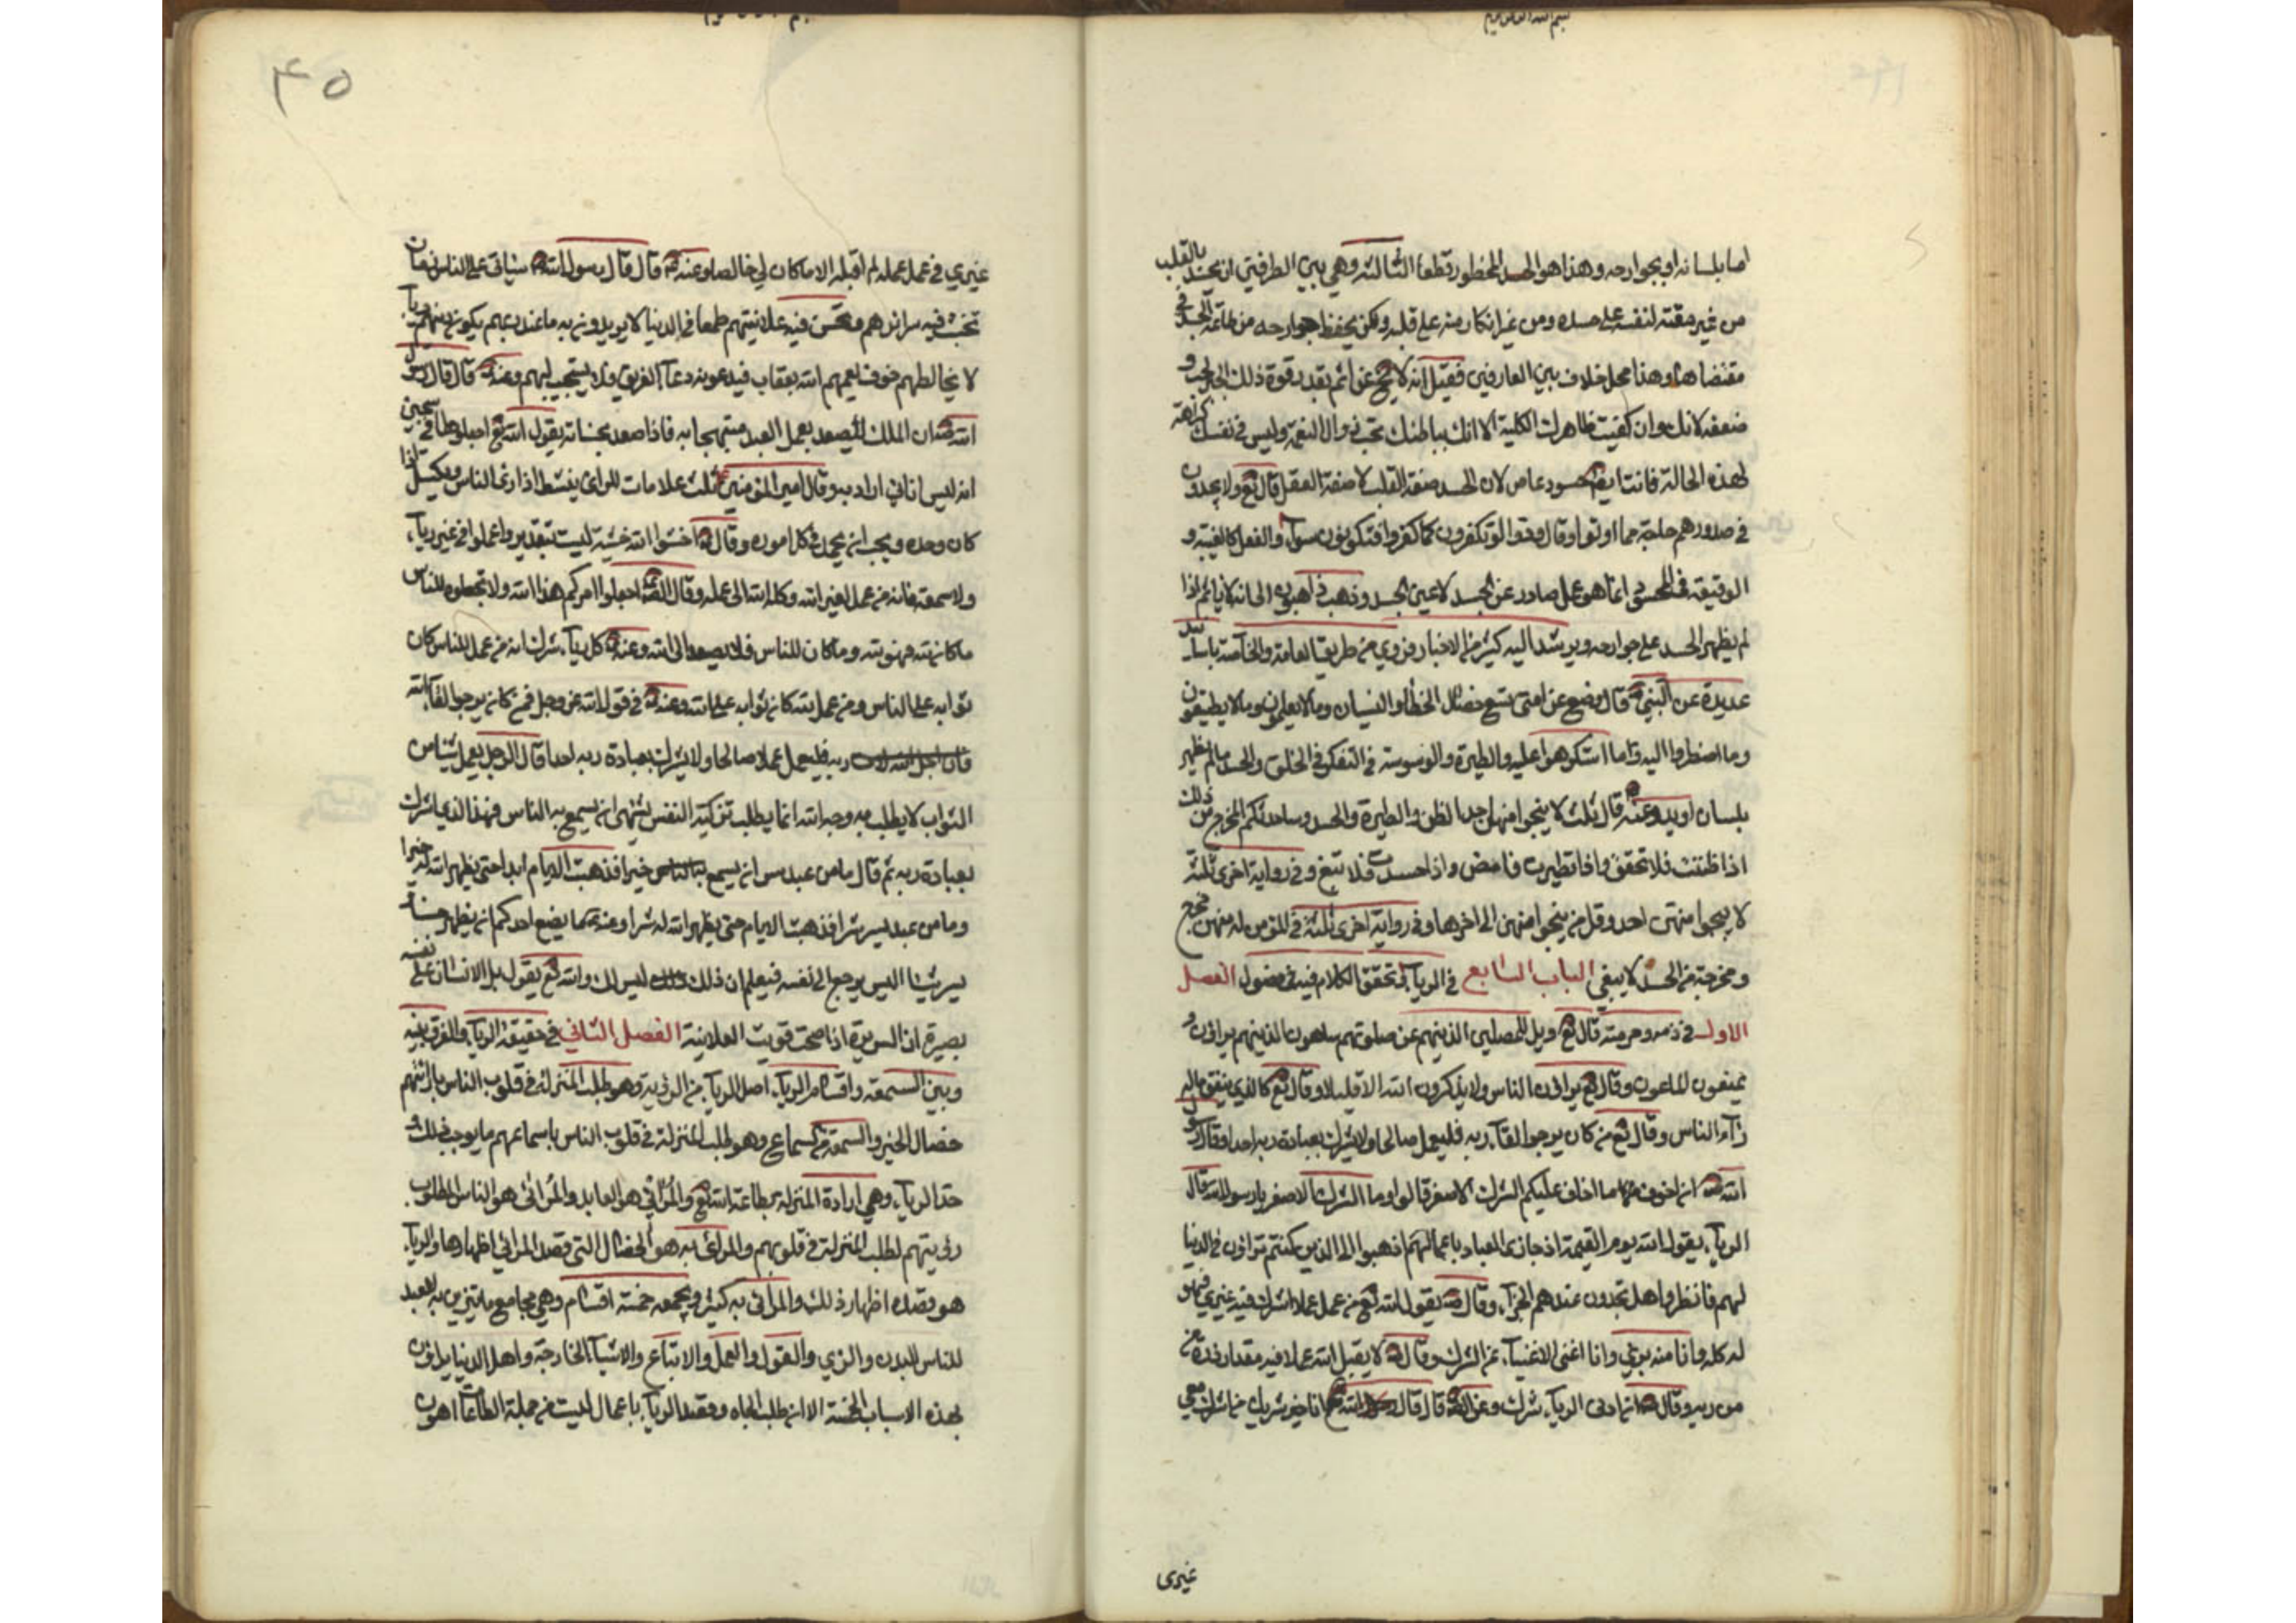 اما بلسانه او بجوارحه وهذا هو الحسد المحظور قطعا الثالثة وهي بين الطرفين ان يحسد بالقلب
من غير مقته لنفسه على حسده ومن غير انكار منه على قلبه ولكن يحفظ جوارحه من طاعة الحسد في
مقتضاها وهذا محل خلاف بين العارفين فقيل انه لا يخ عن اثم بقدر قوة ذلك الحب و
ضعفه لانك وان كففت ظاهرك بالكلية الا انك بباطنك تحب زوال النعمة وليس في نفسك كراهة
لهذه الحالة فانت ايضا حسود عاص لان الحسد صفة القلب لا صفة العقل قال تع ولا يجدون
في صدورهم حاجة مما اوتوا وقال ودوا لو تكفرون كما كفروا فتكونون سوآء والفعل كالغيبة و
الوقيعة في المحسود انما هو عمل صادر عن الحسد لا عين الحسد وذهب ذاهبون الى انه لا ياثم اذا
لم يظهر الحسد على جوارحه ويرشد اليه كثير من الاخبار فروي من طريق العامة والخاصة باسانيد
عديدة عن النبي ص قال وضع عن امتي تسع خصال الخطأ والنسيان وما لا يعلمون وما لا يطيقون
وما اضطروا اليه وما استكرهوا عليه والطيرة والوسوسة في التفكر في الخلق والحسد ما لم يظهر
بلسان او يد وعنه ص قال ثلث لا ينجو منهن احد الظن والطيرة والحسد وساحدثكم المخرج من ذلك
اذا ظننت فلا تحقق واذا تطيرت فامض واذا حسدت فلا تبغ وفي رواية اخرى ثلثة
لا ينجو منهن احد وقل من ينجو منهن الى اخرها وفي رواية اخرى ثلثة في المؤمن له منهن مخرج
ومخرجه من الحسد لا يبغي الباب السابع في الريآء وتحقق الكلام فيه في فصول الفصل
الاول في ذمه وحرمته قال تع ويل للمصلين الذين هم عن صلوتهم ساهون الذين هم يراؤن و
يمنعون الماعون وقال تع يراؤن الناس ولا يذكرون الله الا قليلا وقال تع كالذي ينفق ماله
رئآء الناس وقال تع من كان يرجوا لقآء ربه فليعمل صالحا ولا يشرك بعبادة ربه احدا وقال رسول
الله ص ان اخوف ما اخاف عليكم الشرك الاصغر قالوا وما الشرك الاصغر يا رسول الله قال
الريآء يقول الله يوم القيمة اذ جازى العباد باعمالهم اذهبوا الى الذين كنتم تراؤن في الدنيا
لهم فانظروا هل تجدون عندهم الجزآء وقال ص يقول الله تع من عمل عملا اشرك فيه غيري فهو
له كله وانا منه بريء وانا اغنى الاغنيآء عن الشرك وقال ص لا يقبل الله عملا فيه مقدار ذرة من
من ريو وقال ص ان ادنى الريآء شرك وعن الص قال قال الله تع انا خير شريك من اشرك معي
غيري
٤٥
غيري في عمل عمله لم اقبله الا ما كان لي خالصا وعنه ع قال قال رسول الله ص سياتي على الناس زمان
تخبث فيه سرائرهم وتحسن فيه علانيتهم طمعا في الدنيا لا يريدون به ما عند ربهم يكون دينهم ريآء
لا يخالطهم خوف يعمهم الله بعقاب فيدعونه دعآء الغريق فلا يستجيب لهم وعنه ع قال قال رسول
الله ص ان الملك ليصعد بعمل العبد مبتهجا به فاذا صعد بحسناته يقول الله تع اجعلوها في سجين
انه ليس اياي اراد به وقال امير المؤمنين ع ثلث علامات للمرائي ينشط اذا راى الناس ويكسل اذا
كان وحده ويحب ان يحمد في كل اموره وقال ع اخشوا الله خشية ليست بتعذير واعملوا في غير ريآء
ولا سمعة فانه من عمل لغير الله وكله الله الى عمله وقال الص ع اجعلوا امركم هذا لله ولا تجعلوه للناس
ما كان لله فهو لله وما كان للناس فلا يصعد الى الله وعنه ع كل ريآء شرك انه من عمل للناس كان
ثوابه على الناس ومن عمل لله كان ثوابه على الله وعنه ع في قول الله عز وجل فمن كان يرجوا لقآء
ربه فليعمل عملا صالحا ولا يشرك بعبادة ربه احدا قال الرجل يعمل شيئا من
الثواب لا يطلب به وجه الله انما يطلب تزكية النفس يشتهي ان يسمع به الناس فهذا الذي اشرك
بعبادة ربه ثم قال ما من عبد سر خيرا فذهبت الايام ابدا حتى يظهر الله له خيرا
وما من عبد يسر شرا فذهبت الايام حتى يظهر الله له شرا وعنه ع ما يصنع احدكم ان يظهر حسنا و
يسر سيئا اليس يرجع الى نفسه فيعلم ان ذلك ليس كذلك والله تع يقول بل الانسان على نفسه
بصيرة ان السريرة اذا صحت قويت العلانية الفصل الثاني في حقيقة الريآء والفرق بينه
وبين السمعة واقسام الريآء اصل الريآء من الرؤية وهو طلب المنزلة في قلوب الناس بارائتهم
خصال الخير والسمعة من السماع وهو طلب المنزلة في قلوب الناس باسماعهم ما يوجب ذلك و
حد الريآء وهي ارادة المنزلة بطاعة الله تع والمرائي هو العابد والمرائى هو الناس المطلوب
رؤيتهم لطلب المنزلة في قلوبهم والمرائى به هو الخصال التي قصد المرائي اظهارها والريآء
هو قصده اظهار ذلك والمرائى به كثير ويجمعه خمسة اقسام وهي مجامع ما يتزين به العبد
للناس البدن والزي والقول والعمل والاتباع والاشيآء الخارجة واهل الدنيا يراؤن
بهذه الاسباب الخمسة الا ان طلب الجاه وقصد الريآء باعمال ليست من جملة الطاعات اهون